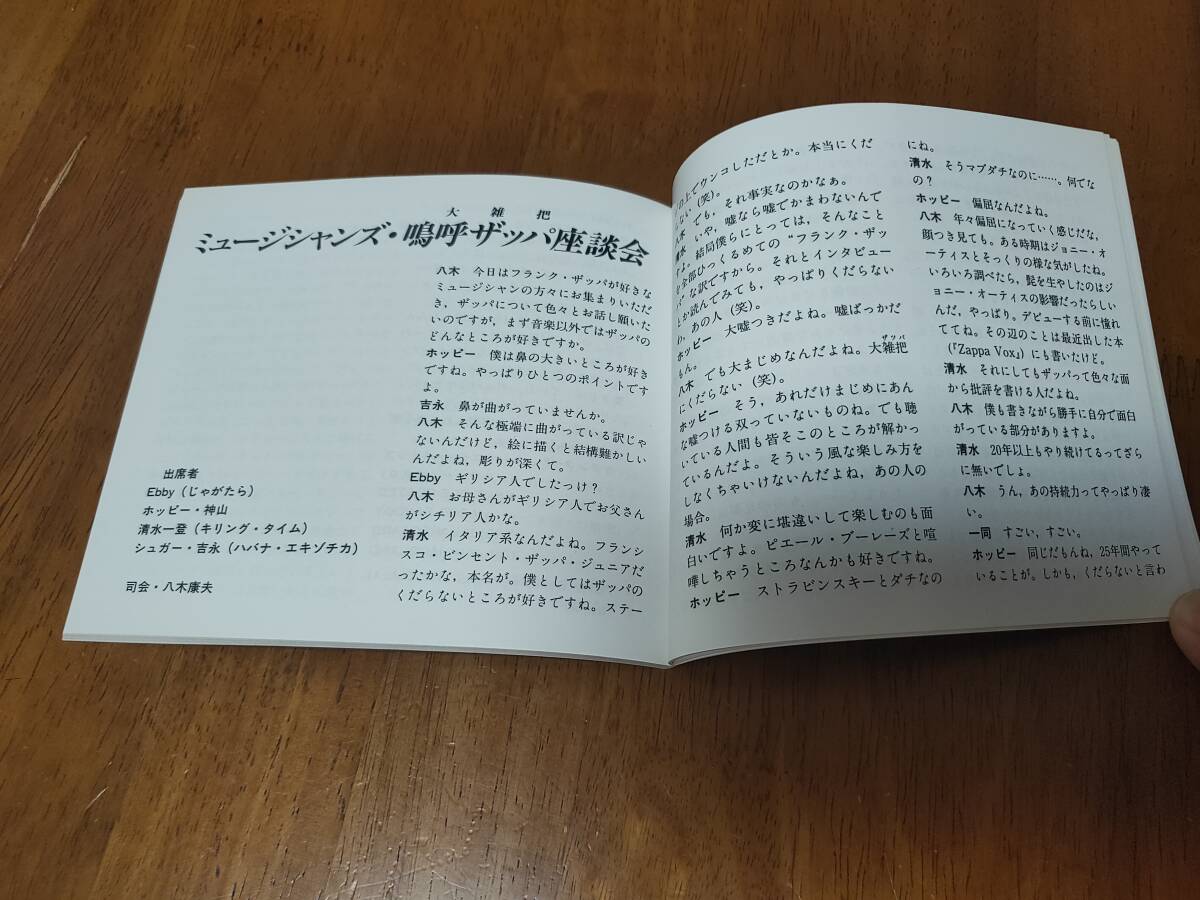 大雑把
ミュージシャンズ・嗚呼ザッパ座談会
出席者
Ebby（じゃがたら）
ホッピー・神山
清水一登（キリング・タイム）
シュガー・吉永（ハバナ・エキゾチカ）
司会・八木康夫
八木　今日はフランク・ザッパが好きな
ミュージシャンの方々にお集まりいただ
き，ザッパについて色々とお話し願いた
いのですが，まず音楽以外ではザッパの
どんなところが好きですか。
ホッピー　僕は鼻の大きいところが好き
ですね。やっぱりひとつのポイントです
よ。
吉永　鼻が曲がっていませんか。
八木　そんな極端に曲がっている訳じゃ
ないんだけど，絵に描くと結構難かしい
んだよね，彫りが深くて。
Ebby　ギリシア人でしたっけ？
八木　お母さんがギリシア人でお父さん
がシチリア人かな。
清水　イタリア系なんだよね。フランシ
スコ・ビンセント・ザッパ・ジュニアだ
ったかな，本名が。僕としてはザッパの
くだらないところが好きですね。ステー
の上でウンコしただとか。本当にくだ
ない（笑）。
八木　でも，それ事実なのかなぁ。
清水　いや，嘘なら嘘でかまわないんで
よ。結局僕らにとっては，そんなこと
全部ひっくるめての“フランク・ザッ
”な訳ですから。それとインタビュー
とか読んでみても，やっぱりくだらない
，あの人（笑）。
ホッピー　大嘘つきだよね。嘘ばっかだ
もん。
八木　でも大まじめなんだよね。大雑把
ザッパ
にくだらない（笑）。
ホッピー　そう，あれだけまじめにあん
な嘘つける奴っていないものね。でも聴
いている人間も皆そこのところが解かっ
ているんだよ。そういう風な楽しみ方を
しなくちゃいけないんだよね，あの人の
場合。
清水　何か変に堪違いして楽しむのも面
白いですよ。ピエール・ブーレーズと喧
嘩しちゃうところなんかも好きですね。
ホッピー　ストラビンスキーとダチなの
にね。
清水　そうマブダチなのに……。何でな
の？
ホッピー　偏屈なんだよね。
八木　年々偏屈になっていく感じだな，
顔つき見ても。ある時期はジョニー・オ
ーティスとそっくりの様な気がしたね。
いろいろ調べたら，髭を生やしたのはジ
ョニー・オーティスの影響だったらしい
んだ，やっぱり。デビューする前に憧れ
ててね。その辺のことは最近出した本
（『Zappa Vox』）にも書いたけど。
清水　それにしてもザッパって色々な面
から批評を書ける人だよね。
八木　僕も書きながら勝手に自分で面白
がっている部分がありますよ。
清水　20年以上もやり続けてるってざら
に無いでしょ。
八木　うん，あの持続力ってやっぱり凄
い。
一同　すごい，すごい。
ホッピー　同じだもんね，25年間やって
いることが。しかも，くだらないと言わ